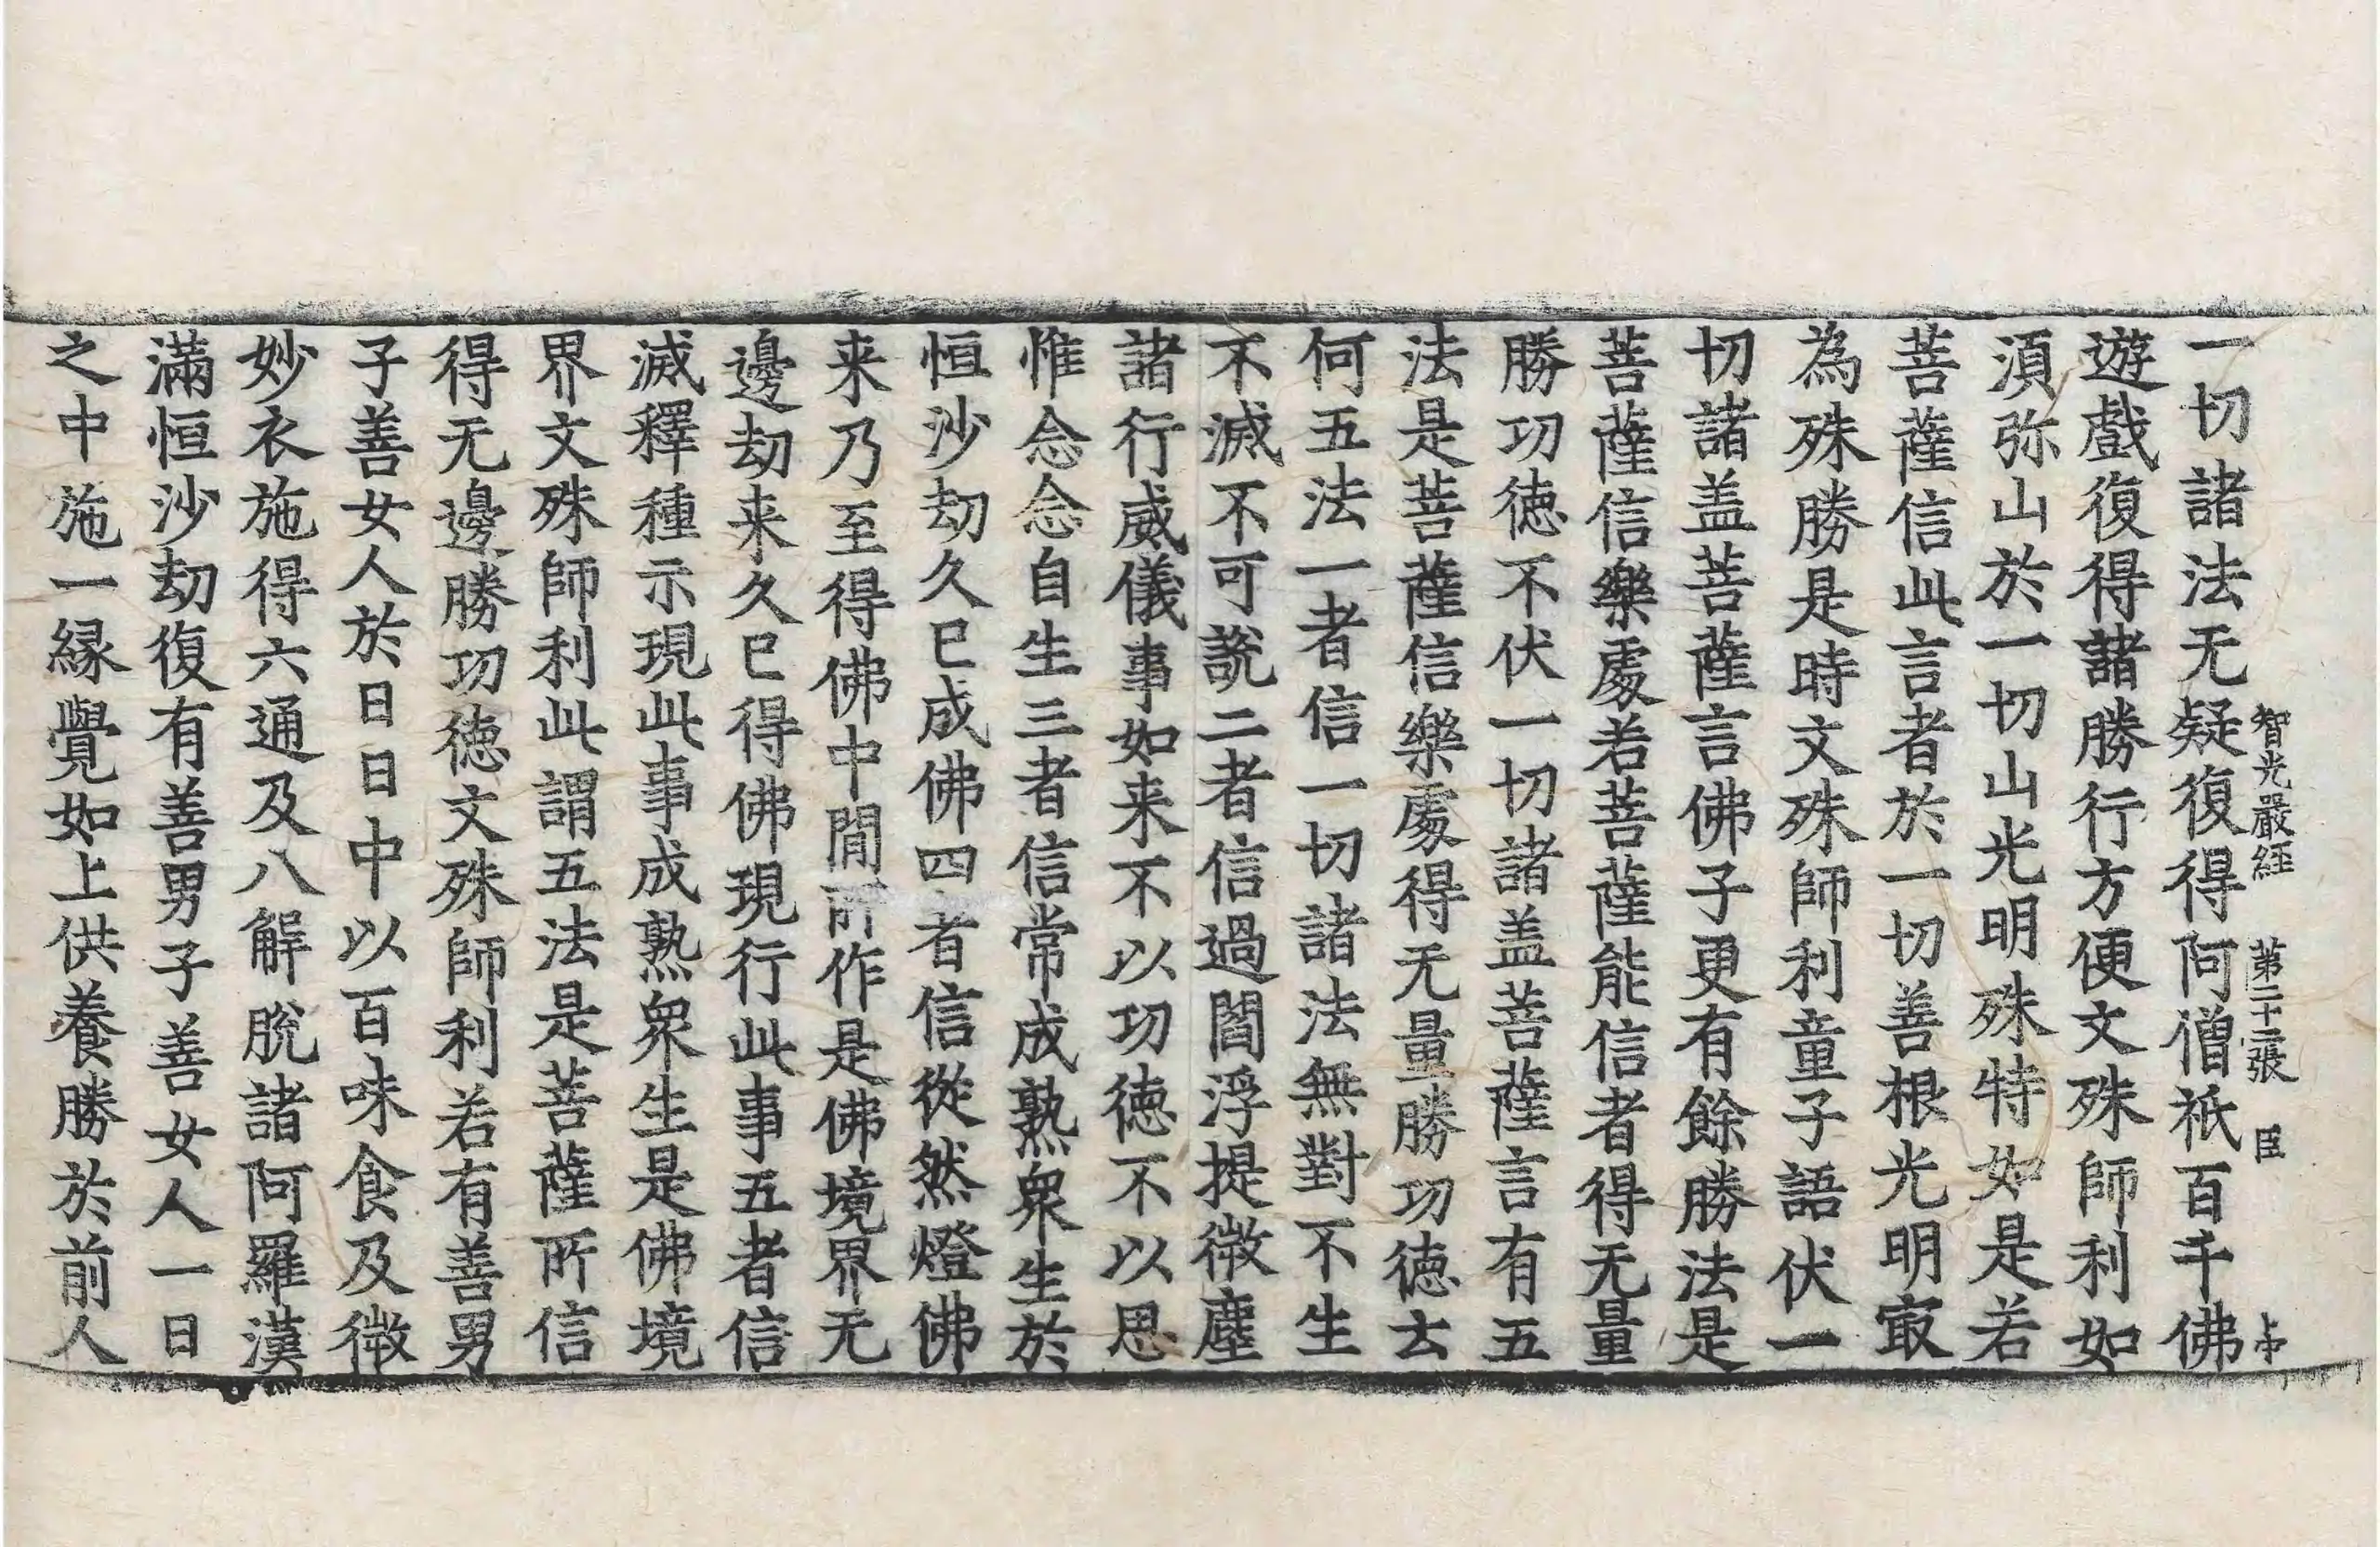 智光嚴經 第二十二張 臣
一切諸法无疑復得阿僧祇百千佛
遊戲復得諸勝行方便文殊師利如
湏弥山於一切山光明殊特如是若
菩薩信此言者於一切善根光明㝡
為殊勝是時文殊師利童子語伏一
切諸盖菩薩言佛子更有餘勝法是
菩薩信樂處若菩薩能信者得无量
勝功徳不伏一切諸盖菩薩言有五
法是菩薩信樂處得无量勝功徳去
何五法一者信一切諸法無對不生
不滅不可說二者信過閻浮提微塵
諸行威儀事如来不以功徳不以思
惟念念自生三者信常成熟衆生於
恒沙劫久已成佛四者信從然燈佛
来乃至得佛中間所作是佛境界无
邊劫来久已得佛現行此事五者信
滅釋種示現此事成熟衆生是佛境
界文殊師利此謂五法是菩薩所信
得无邊勝功徳文殊師利若有善男
子善女人於日日中以百味食及微
妙衣施得六通及八解脫諸阿羅漢
滿恒沙劫復有善男子善女人一日
之中施一縁覺如上供養勝於前人